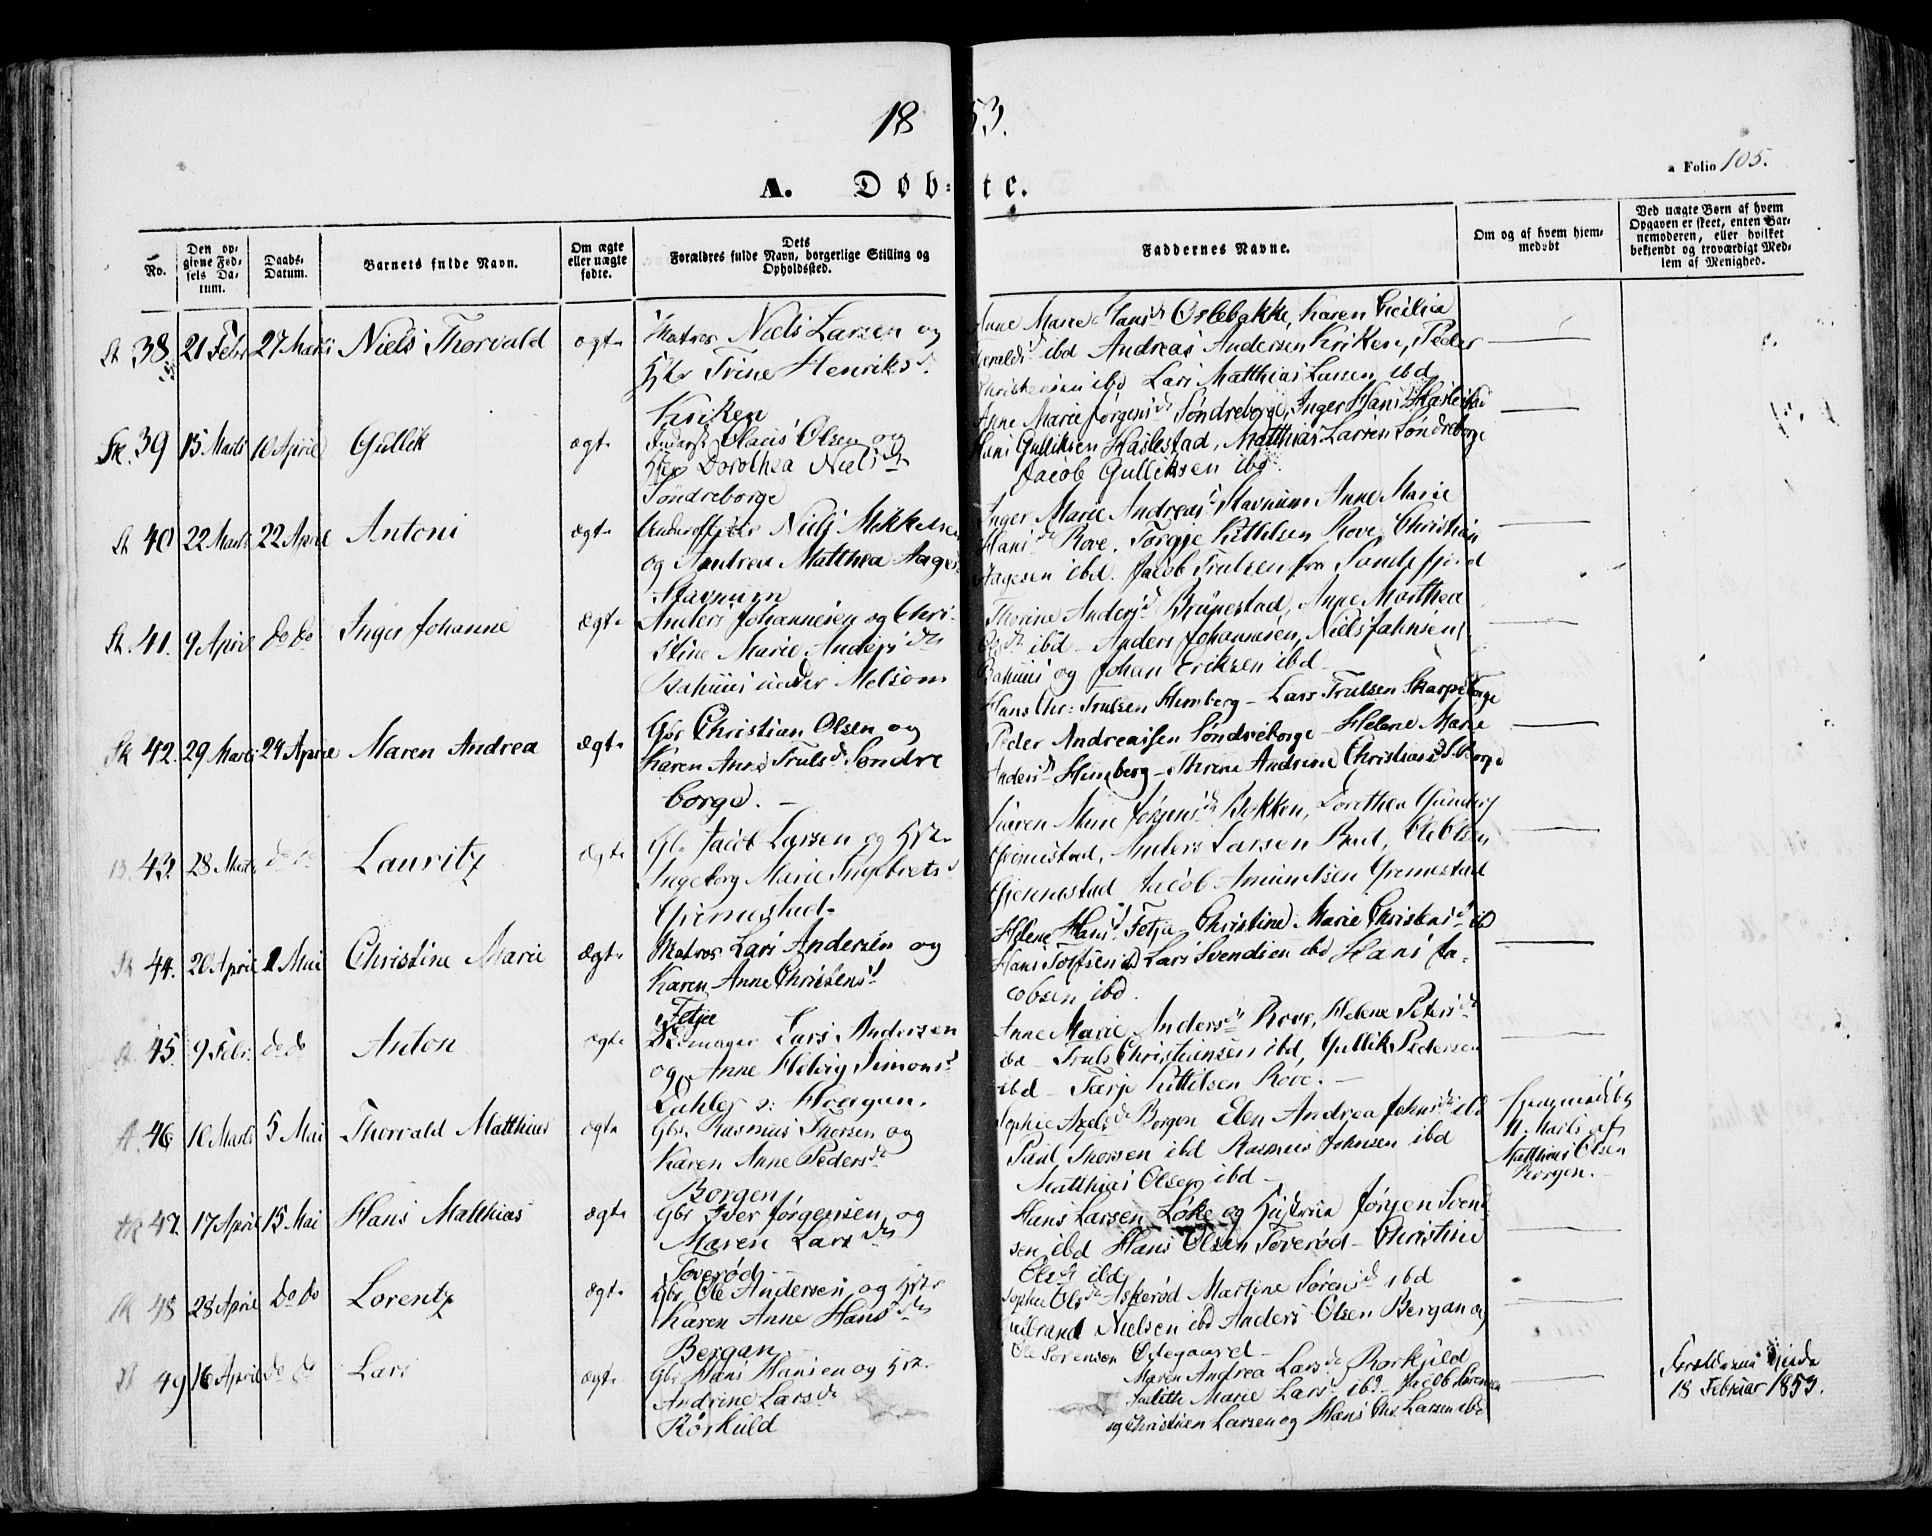 18 53.
a Folio 105.
A. Døb-te.
No.
Den opgivne Fødsels Datum.
Daabs-Datum.
Barnets fulde Navn.
Om ægte eller uægte fødte.
Dets Forældres fulde Navn, borgerlige Stilling og Opholdssted.
Faddernes Navne.
Om og af hvem hjemmedøbt
Ved uægte Børn af hvem Opgaven er skeet, enten Barnemoderen, eller hvilket bekjendt og troværdigt Medlem af Menighed.
St 38. 21 Febr 27 Marts Niels Thorvald ægte
Matros Niels Larsen og
Trine Henriksd.
Kriken
Anne Marie Hansd. Oslebakke, Karen Cecilia
ibd Andreas Andersen Kriken, Peder
Christensen ibd Lars Matthias Larsen ibd
Sk. 39 15 Marts 10 April Gullik ægte
Olsen og
Dorothea Nielsd.
Søndreborge
Anne Marie Jørgensd. Søndreborge, Inger Hansd.
Hans Gulliksen Haslestad, Matthias Larsen Søndreborge
Jacob Gulliksen ibd
St 40 22 Marts 22 April Antoni ægte
Underofficer Niels Mikkelsen
og Andrea Matthea Aagesd.
Stavnum
Inger Marie Andreasd. Stavnum Anne Marie
Hansd. Rove. Torgje Kittilsen Rove, Christian
Aagesen ibd. Jacob Trulsen fra Sandefjord
St. 41. 9 April do do Inger Johanne ægte
Anders Johannesen og Chri-
stine Marie Andersd.
Bahuus under Melsom
Thorine Andersd. Anne Marthea
Olsd. ibd - Anders Johannesen, Niels Jahnsen
Bahuus og Johan Eriksen ibd
Sk 42. 29 Marts 24 April Maren Andrea ægte
Gbr Christian Olsen og
Karen Anne Trulsd. Søndre
borge. -
Hans Chr: Trulsen Himberg - Lars Trulsen Skarpeborge
Peder Andreassen Søndreborge - Helene Marie
Andersd. Himberg - Thrine Andrine Christiansd. S. Borge
43. 28 Marts do do Lauritz ægte
Gbr Jacob Larsen og Hst.
Ingeborg Marie Ingebretsd.
Gjennestad.
Karen Marie Jørgensd. Bakken, Dorothea
Gjennestad, Anders Larsen Ole Olsen
Gjennestad Jacob Amundsen Gjennestad
Sk 44. 20 April 1 Mai Christine Marie ægte
Matros Lars Andersen og
Karen Anne Christensd.
Fetja
Helene Hansd. Fetja Christine Marie Christensd. ibd
Hans Tolfsen ibd Lars Svendsen ibd Hans Ja-
cobsen ibd.
45. 9 Febr. do do Anton ægte
Lars Andersen
og Anne Helvig Simonsd.
Anne Marie Andersd. Rove, Helene Petersd.
ibd - Truls Christiansen ibd, Gullik Pedersen
ibd - Tærje Kittelsen Rove. -
A. 46 10 Marts 5 Mai Thorvald Matthias ægte
Gbr. Rasmus Thorsen og
Karen Anne Pedersd.
Borgen
Sophie Axelsd. Borgen Elen Andrea Johnsd. ibd
Paul Thorsen ibd Rasmus Johnsen ibd
Matthias Olsen ibd -
Hjemmedøbt
11 Marts af
Matthias Olsen
Borgen.
Sk 47. 17 April 15 Mai Hans Matthias ægte
Gbr Iver Jørgensen og
Maren Larsd.
Toverød
Hans Larsen Løke og Hustrue Jørgen Svend
sen ibd Hans Olsen Toverød - Christine
Olsd. ibd
Sk 48 28 April do do Lorentz ægte
Gbr. Ole Andersen og Hst
Karen Anne Hansd.
Bergan
Sophie Olsd. Askerød Martine Sørensd. ibd
Gulbrand Nielsen ibd Anders Olsen Bergan og
Ole Sørensen Ødegaard
St 49 16 April do do Lars ægte
Gbr Hans Hansen og Hst.
Andrine Larsd.
Rørkuld
Maren Andrea Larsd. Rørkuld
Marie Larsd. ibd Jacob Sørensen
og Christian Larsen og Hans Chr. Larsen ibd
Forældrene viede
18 Februar 1853.